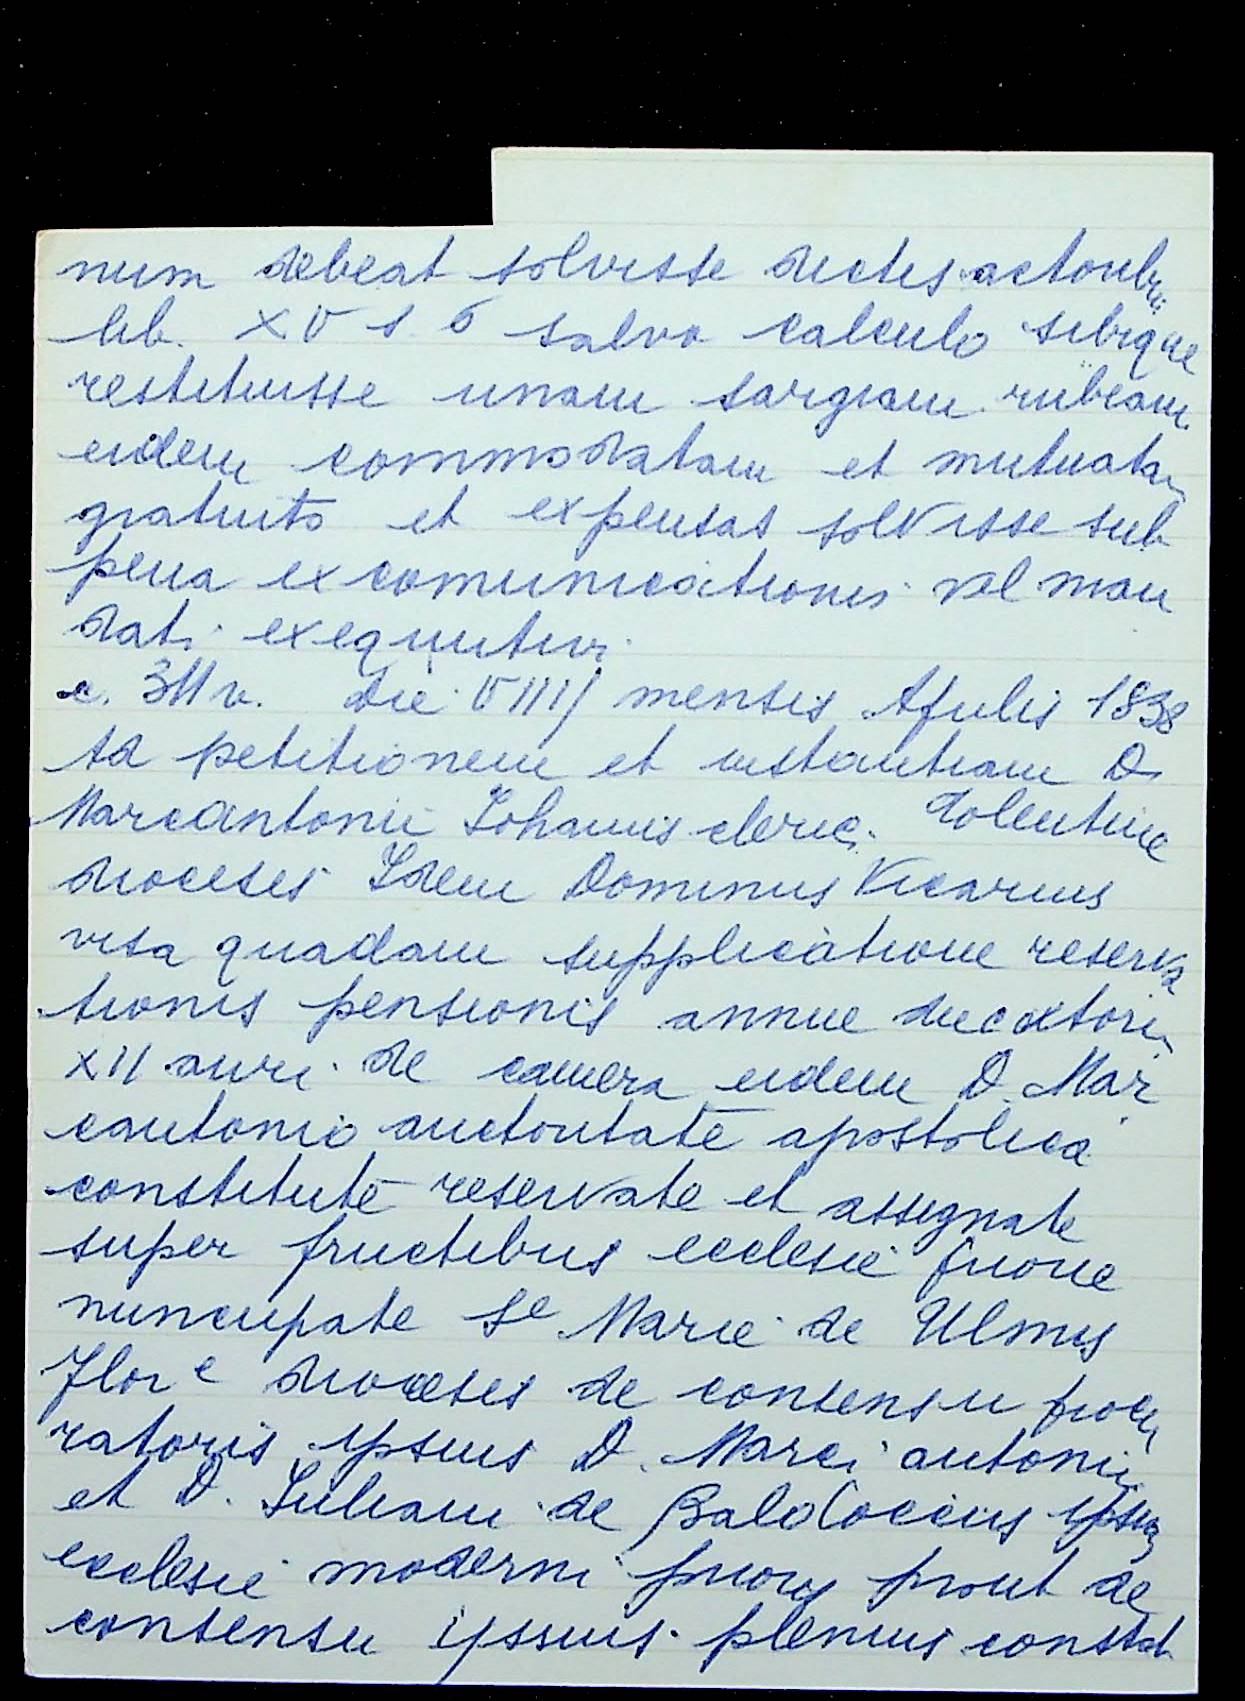 num debeat solvisse dictis actoribus
lib. XV s 6 salvo calculo sibique
restituisse unam sargiam rubeam
eidem commodatam et mutuatam
gratuito et expensas solvisse sub
pena excomunicationis vel man
dati exequutivi
c. 311 v. Die VIIIJ mensis Aprilis 1538
Ad petitionem et instantiam D.
Marcantonii Iohannis cleric. Tolentine
diocesis Idem Dominus Vicarius
visa quadam supplicatione reserva
tionis pensionis annue ducatorum
XII auri de camera eidem D. Mar
cantonio auctoritate apostolica
constitute reservate et assignate
super fructibus ecclesie priorie
nuncupate Se Marie de Ulmis
Flore diocesis de consensu procu
ratoris ipsius D. Marci antonii
et D. Iuliani de Baldocciis ipsius
ecclesie moderni prioris prout de
consensu ipsius plenius constat